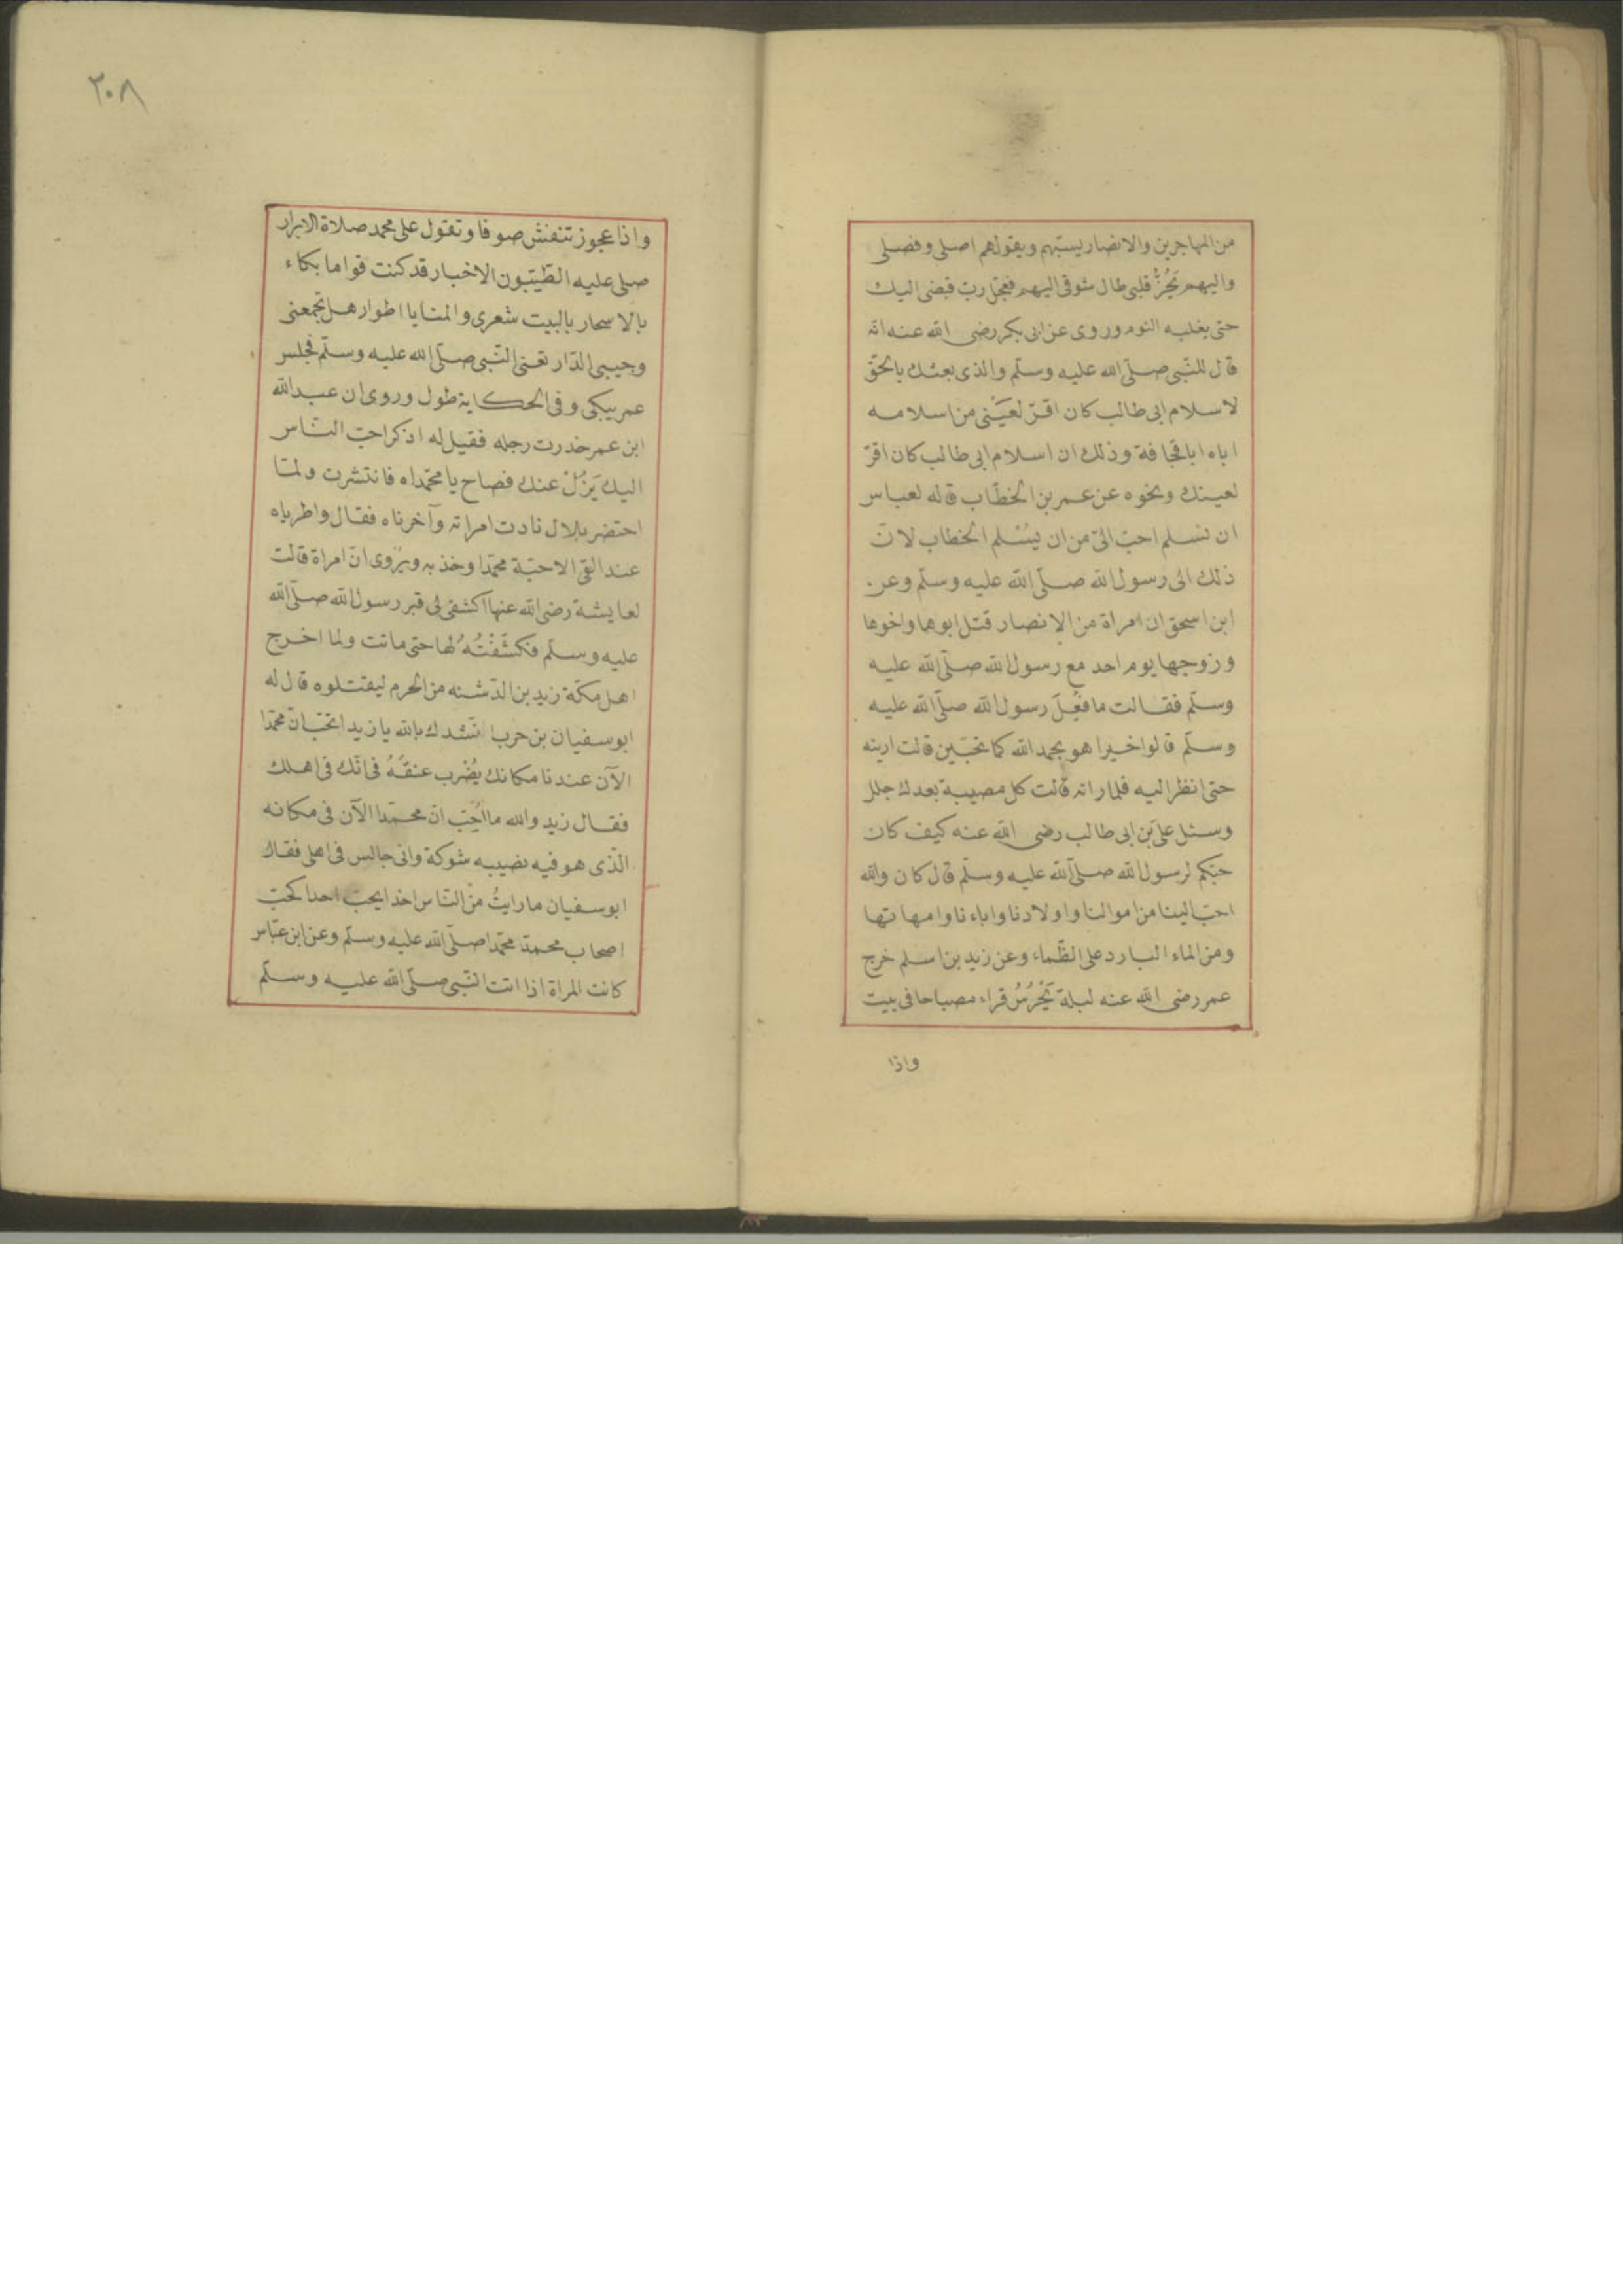 من المهاجرين والانصار يستبهم ويقول هم اصلى وفصلى
واليهم يَحُِنُّ قلبى طال شوقى اليهم فعجّل ربّ قبضى اليك
حتى يغلبه النوم وروى عن ابى بكر رضى الله عنه انّه
قال للنّبى صلّى الله عليه وسلّم والذى بعثك بالحقّ
لاسلام ابى طالب كان اقرّ لعَيْنى من اسلامه
اباه ابا قحافة وذلك ان اسلام ابى طالب كان اقرّ
لعينك ونحوه عن عمر بن الخطّاب قاله لعباس
ان تسلم احبّ الىّ من ان يُسْلم الخطاب لانّ
ذلك الى رسول الله صلّى الله عليه وسلّم وعن
ابن اسحق ان امراة من الانصار قتل ابوها واخوها
وزوجها يوم احد مع رسول الله صلّى الله عليه
وسلّم فقالت ما فُعِلَ رسول الله صلّى الله عليه
وسلّم قالوا خيرا هو بحمد الله كما تحبّين قالت ارينه
حتى انظر اليه فلما راته قالت كل مصيبة بعدك جلل
وسئل علىّ بن ابى طالب رضى الله عنه كيف كان
حبّكم لرسول الله صلّى الله عليه وسلّم قال كان والله
احبّ الينا من اموالنا واولادنا واباءنا وامهاتها
ومن الماء البارد على الظّماء وعن زيد بن اسلم خرج
عمر رضى الله عنه ليلة يَحْرُسُ قراء مصباحا فى بيت
واذا
٢٠٨
واذا عجوز تنفش صوفا وتقول على محمد صلاة الابرار
صلى عليه الطّيّبون الاخيار قد كنت قواما بكاء
بالاسحار باليت شعرى والمنايا اطوار هل تجمعنى
وحبيبى الدّار تعنى النّبى صلّى الله عليه وسلّم فجلس
عمر يبكى وفى الحكاية طول وروى ان عبد الله
ابن عمر خدرت رجله فقيل له اذكر احبّ النّاس
اليك يَزُلْ عنك فصاح يا محمّداه فانتشرت ولمّا
احتضر بلال نادت امراته وآخرناه فقال واطرباه
عندا القى الاحبّة محمّدا وحذبه ويُرْوى انّ امراة قالت
لعايشة رضى الله عنها اكشفى لى قبر رسول الله صلّى الله
عليه وسلّم فكشَفْتُهُ لها حتى ماتت ولما اخرج
اهل مكّة زيد بن الدّشنه من الحرم ليقتلوه قال له
ابو سفيان بن حرب انشدك بالله يا زيد اتحبّ انّ محمّدا
الآن عندنا مكانك يُضْرب عنقُهُ فى انّك فى اهلك
فقال زيد والله ما اُحِبّ انّ محمّدا الآن فى مكانه
الّذى هو فيه نصيبه شوكة وانى جالس فى اهلى فقال
ابو سفيان ما رايتُ منْ النّاس احدا يحبّ احدا كحبّ
اصحاب محمدّ محمّدا صلّى الله عليه وسلّم وعن ابن عبّاس
كانت المراة اذا اتت النّبى صلّى الله عليه وسلّم